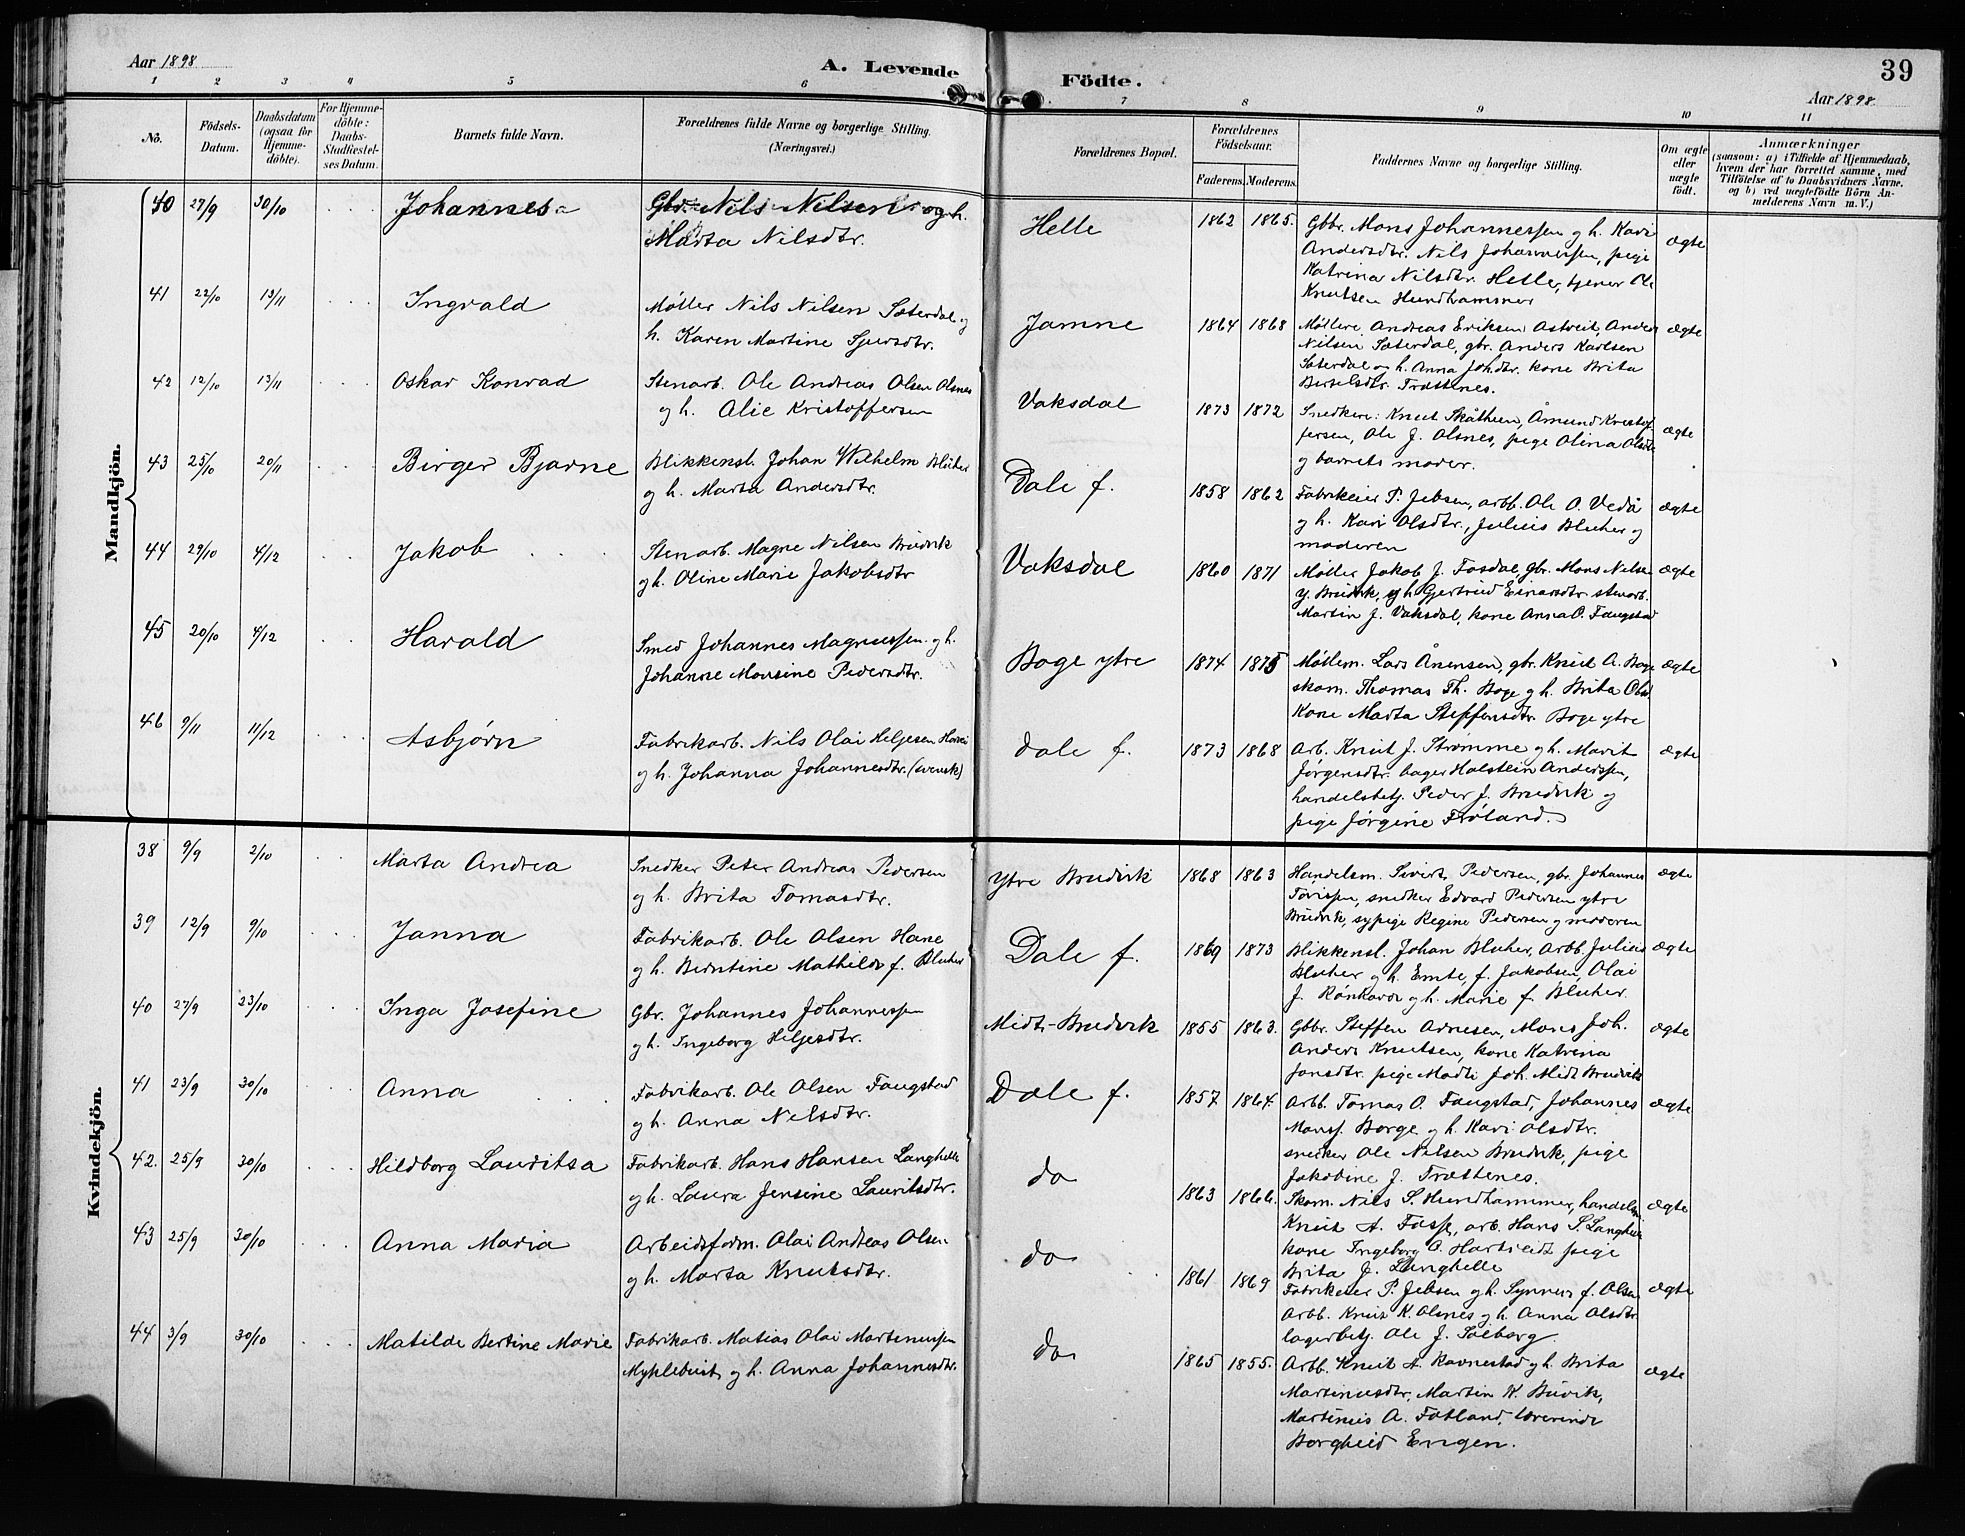 Aar 1898
A. Levende Födte.
39
Aar 1898
1 2 3 4 5 6 7 8 9 10 11
No.
Födsels-Datum.
Daabsdatum (ogsaa for Hjemme-döbte).
For Hjemme-döbte: Daabs-Stadfæstel-ses Datum.
Barnets fulde Navn.
Forældrenes fulde Navne og borgerlige Stilling. (Næringsvei.)
Forældrenes Bopæl.
Forældrenes Födselsaar.
Faderens. Moderens.
Faddernes Navne og borgerlige Stilling.
Om ægte eller uægte födt.
Anmærkninger
(saasom: a) i Tilfælde af Hjemmedaab, hvem der har forrettet samme, med Tilföielse af to Daabsvidners Navne, og b) ved uægtefödte Börn An-melderens Navn m. V.)
Mandkjön.
40 27/9 30/10 Johannes Gbr. Nils Nilsen og h.
Marta Nilsdtr. Helle 1862 1865. Gbbr. Mons Johannessen og h. Kari
Andersdtr. Nils Johannessen, pige
Katrina Nilsdtr. Helle, tjener Ole
Knutsen Hundhammer ægte
41 22/10 13/11 Ingvald Møller Nils Nilsen Sæterdal og
h. Karen Martine Sjursdtr. Jamne 1864 1868 Møllere Andreas Eriksen Astveit, Anders
Nilsen Sæterdal, gbr. Anders Karlsen
Sæterdal og h. Anna Johdtr. kone Brita
Bertelsdtr. Trættenes. ægte
42 12/10 13/11 Oskar Konrad Stenarb. Ole Andreas Olsen Olsnes
og h. Alie Kristoffersen Vaksdal 1873 1872 Snedkere: Knut Skåtheim, Åmund Kristof
fersen, Ole J. Olsnes, pige Olina Olsdtr
og barnets moder. ægte
43 25/10 20/11 Birger Bjarne Blikkensl. Johan Wilhelm Blüher
og h. Marta Andersdtr. Dale f. 1858 1862 Fabrikeier P. Jebsen, arb. Ole O. Vedå
og h. Kari Olsdtr., Julius Bluher og
moderen ægte
44 29/10 4/12 Jakob Stenarb. Magne Nilsen Brudvik
og h. Oline Marie Jakobsdtr Vaksdal 1860 1871 Møller Jakob J. Fosdal, gbr. Mons Nilsen
y. Brudvik, og h Gertrud Einarsdtr stenarb.
Martin J. Vaksdal, kone Anna O. Faugstad ægte
45 20/10 4/12 Harald Smed Johannes Magnussen og h.
Johanne Monsine Pedersdtr. Boge ytre 1874 1875 Møllem. Lars Ånensen, gbr. Knut A. Boge
skom. Thomas Th. Boge og h. Brita Olsd
Kone Marta Steffensdtr. Boge ytre ægte
46 9/11 11/12 Asbjørn Fabrikarb. Nils Olai Heljesen
og h. Johanna Johannesdtr. (svensk) Dale f. 1873 1868 Arb. Knut J. Strømme og h. Marit
Jørgensdtr. bager Halstein Anderssen,
handelsbetj. Peder J. Brudvik og
pige Jørgine Frøland. ægte
Kvindekjön.
38 9/9 2/10 Marta Andrea Snedker Peter Andreas Pedersen
og h. Brita Tomasdtr. Ytre Brudvik 1868 1863 Handelsm. Sivert Pedersen, gbr. Johannes
snedker Edvard Pedersen ytre
Brudvik, sypige Regine Pedersen og moderen ægte
39 12/9 9/10 Janna Fabrikarb. Ole Olsen Hane
og h. Berntine Mathilde f. Bluher Dale f. 1869 1873 Blikkensl. Johan Bluher, Arbb. Julius
Bluher og h. Emte, f. Jakobsen, Olai
J. og h. Marie f. Bluher. ægte
40 27/9 23/10 Inga Josefine Gbr. Johannes Johannessen
og h. Ingeborg Heljesdtr. Midt-Brudvik 1855 1863. Gbbr. Steffen Arnesen, Mons Joh.
Anders Knutsen, kone Katrina
Jonsdtr. pige Madli Joh. Midt Brudvik ægte
41 23/9 30/10 Anna Fabrikarb. Ole Olsen Faugstad
og h. Anna Nilsdtr. Dale f. 1857 1864. Arbb. Tomas O. Faugstad, Johannes
Monss. Borge og h. Kari Olsdtr.
snekker Ole Nilsen Brudvik, pige
Jakobine J. Trættenes. ægte
42. 25/9 30/10 Hildborg Lauritsa Fabrikarb. Hans Hansen Langhelle
og h. Laura Jensine Lauritsdtr. do 1863 1866. Skom. Nils S. Hundhammer, handelsm
Knut A. Fosse, arb. Hans S. Langhelle
kone Ingeborg O. Hartveidt pige
Brita J. Langhelle ægte
43 25/9 30/10 Anna Maria Arbeidsform. Olai Andreas Olsen
og h. Marta Knutsdtr. do 1861 1869 Fabrikeier P. Jebsen og h. Synneva f. Olsen
Arbb. Knut K. Olsnes og h. Anna Olsdtr
lagerbetj. Ole J. Solberg. ægte
44 3/9 30/10 Matilde Bertine Marie Fabrikarb. Matias Olai Martinussen
Myklebust og h. Anna Johannesdtr. do 1865 1855. Arbb. Knut A. Ravnestad og h. Brita
Martinusdtr, Martin K. Buvik,
Martinus A. Fotland, lærerinde
Borghild Engen. ægte